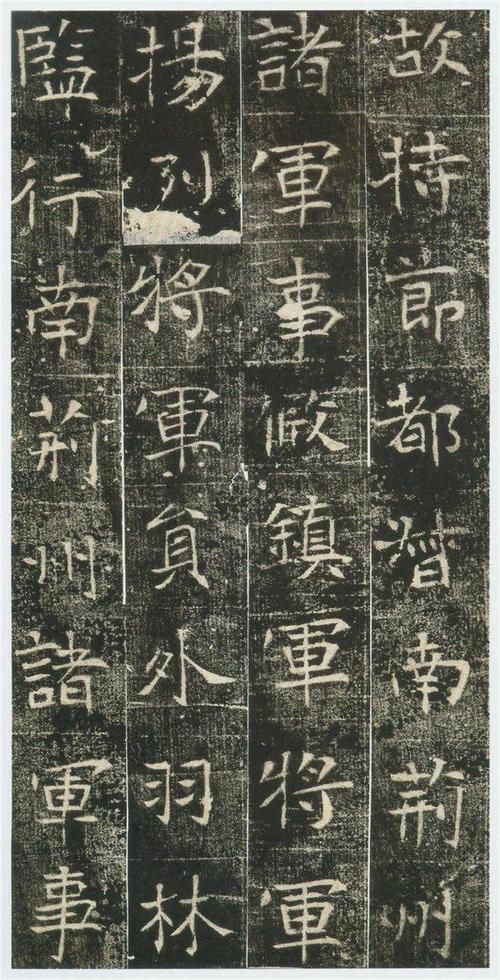 故持節都督南荊州
諸軍事假鎮軍將軍
揚列將軍員外羽林
監行南荊州諸軍事